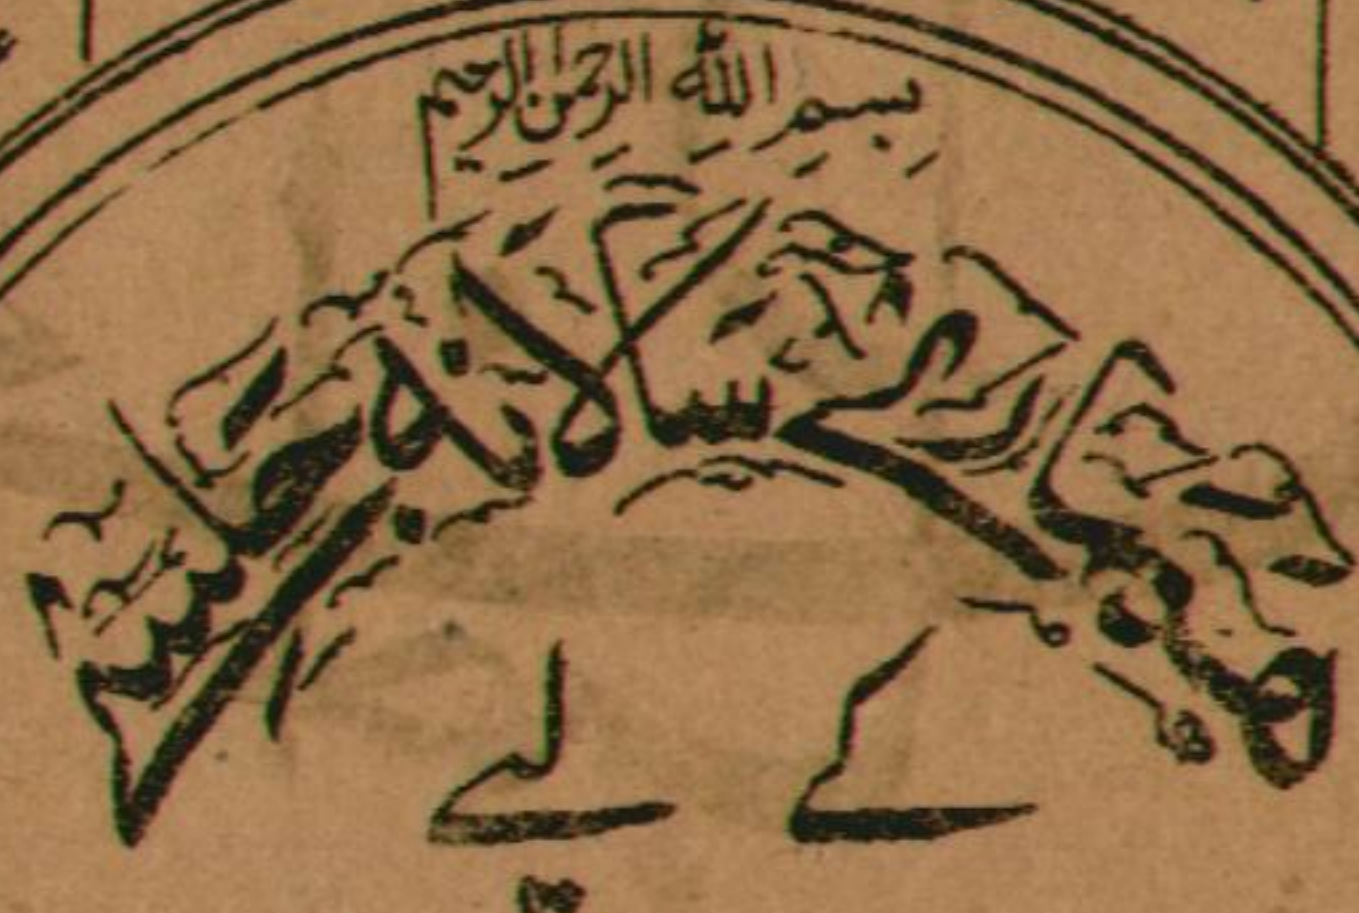 بسم الله الرحمن الرحیم
ہمارے سالانہ جلسے
کے لے